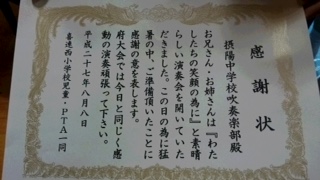 感謝状
摂陽中学校吹奏楽部殿
お兄さん・お姉さんは『わた
したちの笑顔の為に』と素晴
らしい演奏会を開いていた
だきました。この日の為に猛
暑の中、ご準備頂いたことに
感謝の意を表します。
府大会では今日と同じく感
動の演奏頑張って下さい。
平成二十七年八月八日
喜連西小学校児童・PTA一同